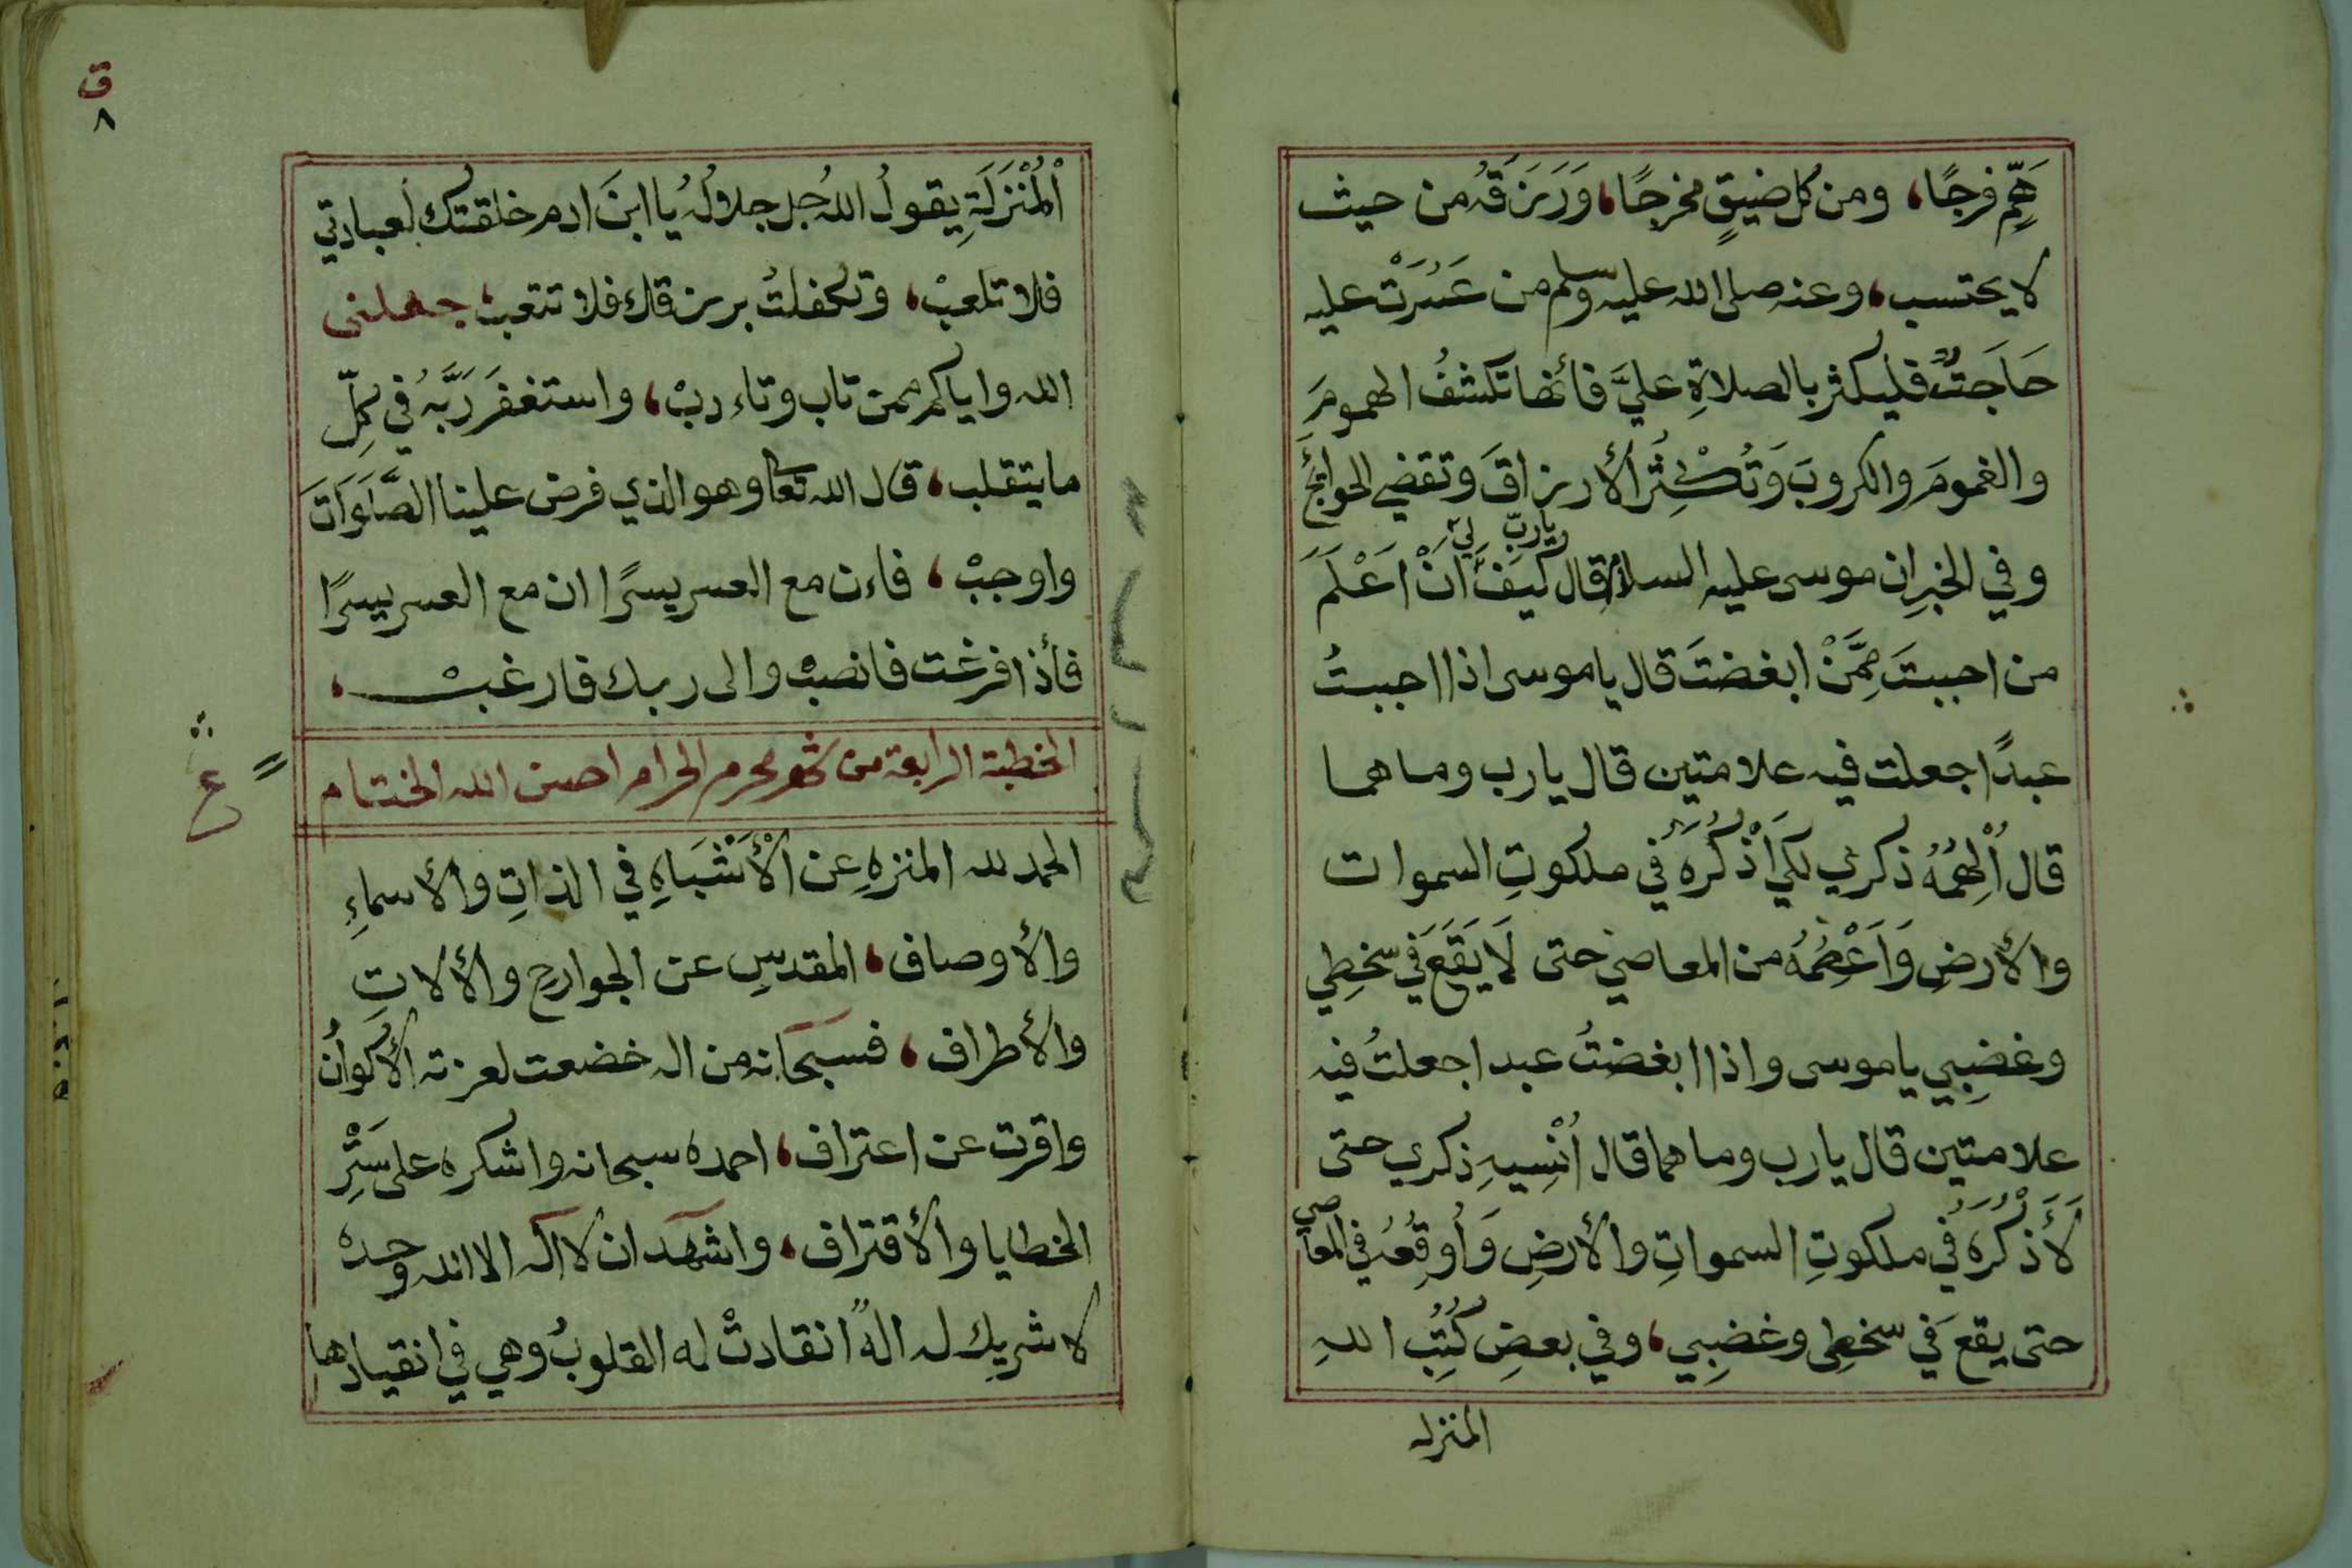 هَمٍّ فرجًا، ومن كل ضيقٍ مخرجًا، وَرَزَقَهُ من حيث
لا يحتسب، وعنه صلى الله عليه وسلم من عَسُرَتْ عليه
حَاجَتٌ فليكثر بالصلاةِ عليَّ فأنها تكشفُ الهمومَ
والغمومَ والكروبَ وَتُكْثِرُ الأرزاقَ وتقضي الحوائجَ
وفي الخبرِ ان موسى عليه السلام قال يارَبِّ كَيفَ لِي اَنْ اَعْلَمَ
من احببتَ مِمَّنْ ابغضتَ قال يا موسى اذا احببتُ
عبدًا جعلت فيه علامتين قال يارب وما هما
قال أُلْهِمُهُ ذكري لكي أَذْكُرَهُ في ملكوتِ السموات
والأرضِ وَاَعْصِمُهُ من المعاصي حتى لَا يَقَعَ في سخطِي
وغضبِي يا موسى واذا ابغضتُ عبدا جعلتُ فيه
علامتين قال يارب وما هما قال اُنْسِيهِ ذكري حتى
لَأَذْكُرَهُ في ملكوتِ السمواتِ والأرضِ وَاُوقِعُهُ في المعاصي
حتى يقعَ في سخطِي وغضبِي، وفي بعضِ كُتُبِ اللهِ
المنزله
ق
٨
اْلمُنْزَلَةِ يقولُ اللهُ جل جلالُهُ يا ابنَ ادم خلقتك لعبادتي
فلا تلعبْ، وتكفلتُ برزقك فلا تتعبْ، جعلني
الله واياكم ممن تاب وتاءدبْ، واستغفَرَ رَبَّهُ في كلِّ
ما يتقلب، قال الله تعا وهو الذي فرض علينا الصَّلَوَاتَ
واوجبْ، فاءن مع العسر يسرًا ان مع العسر يسرًا
فأذا فرغت فانصبْ والى ربك فارغبْ،
الخطبة الرابعة من شهر محرم الحرام احسن الله الختام
ع
الحمد لله المنزهِ عن الْأَشْبَاهِ في الذاتِ والأسماءِ
والأوصاف، المقدسِ عن الجوارحِ والألاتِ
والأطراف، فسبحانه من اله خضعت لعزته الأكوانُ
واقرت عن اعتراف، احمده سبحانه واشكره على سَتْرِ
الخطايا والأقتراف، واشهد ان لا اله الا الله وحده
لا شريك له الهٌ انقادتْ له القلوبُ وهي في انقيادها